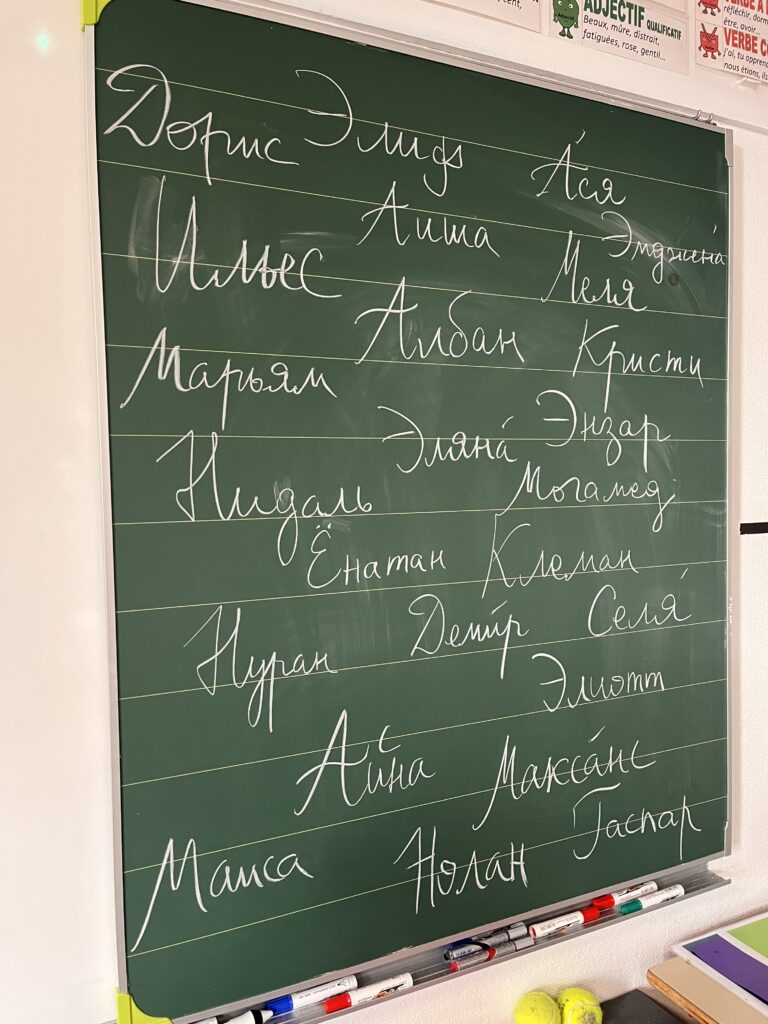 ADJECTIF QUALIFICATIF
Beaux, mûre, distrait,
fatiguées, rose, gentil...
réfléchir, dorm
être, avoir...
VERBE CO
j'ai, tu apprend
nous étions, ils
Дорис Элиф А́ся
Аиша Эмджена́
Ильес Меля
Албан Кристи
Марьям
Эляна́ Энзар
Нидаль Могамед
Ёнатан Клеман
Нуран Деми́р Селя́
Элиотт
Айна Макса́нс
Маиса Нолан Гаспар